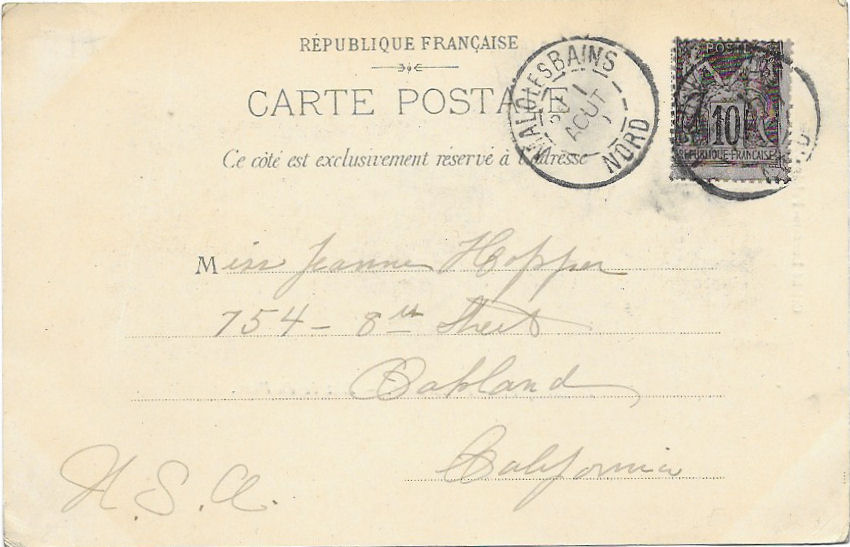 RÉPUBLIQUE FRANÇAISE
CARTE POSTALE
MALO LES BAINS
1
AOUT
NORD
POSTES
10
REPUBLIQUE FRANÇAISE
Ce côté est exclusivement réservé à l'adresse
Miss Jeanne Hopper
754 - 8th Street
Oakland
California
U.S.A.